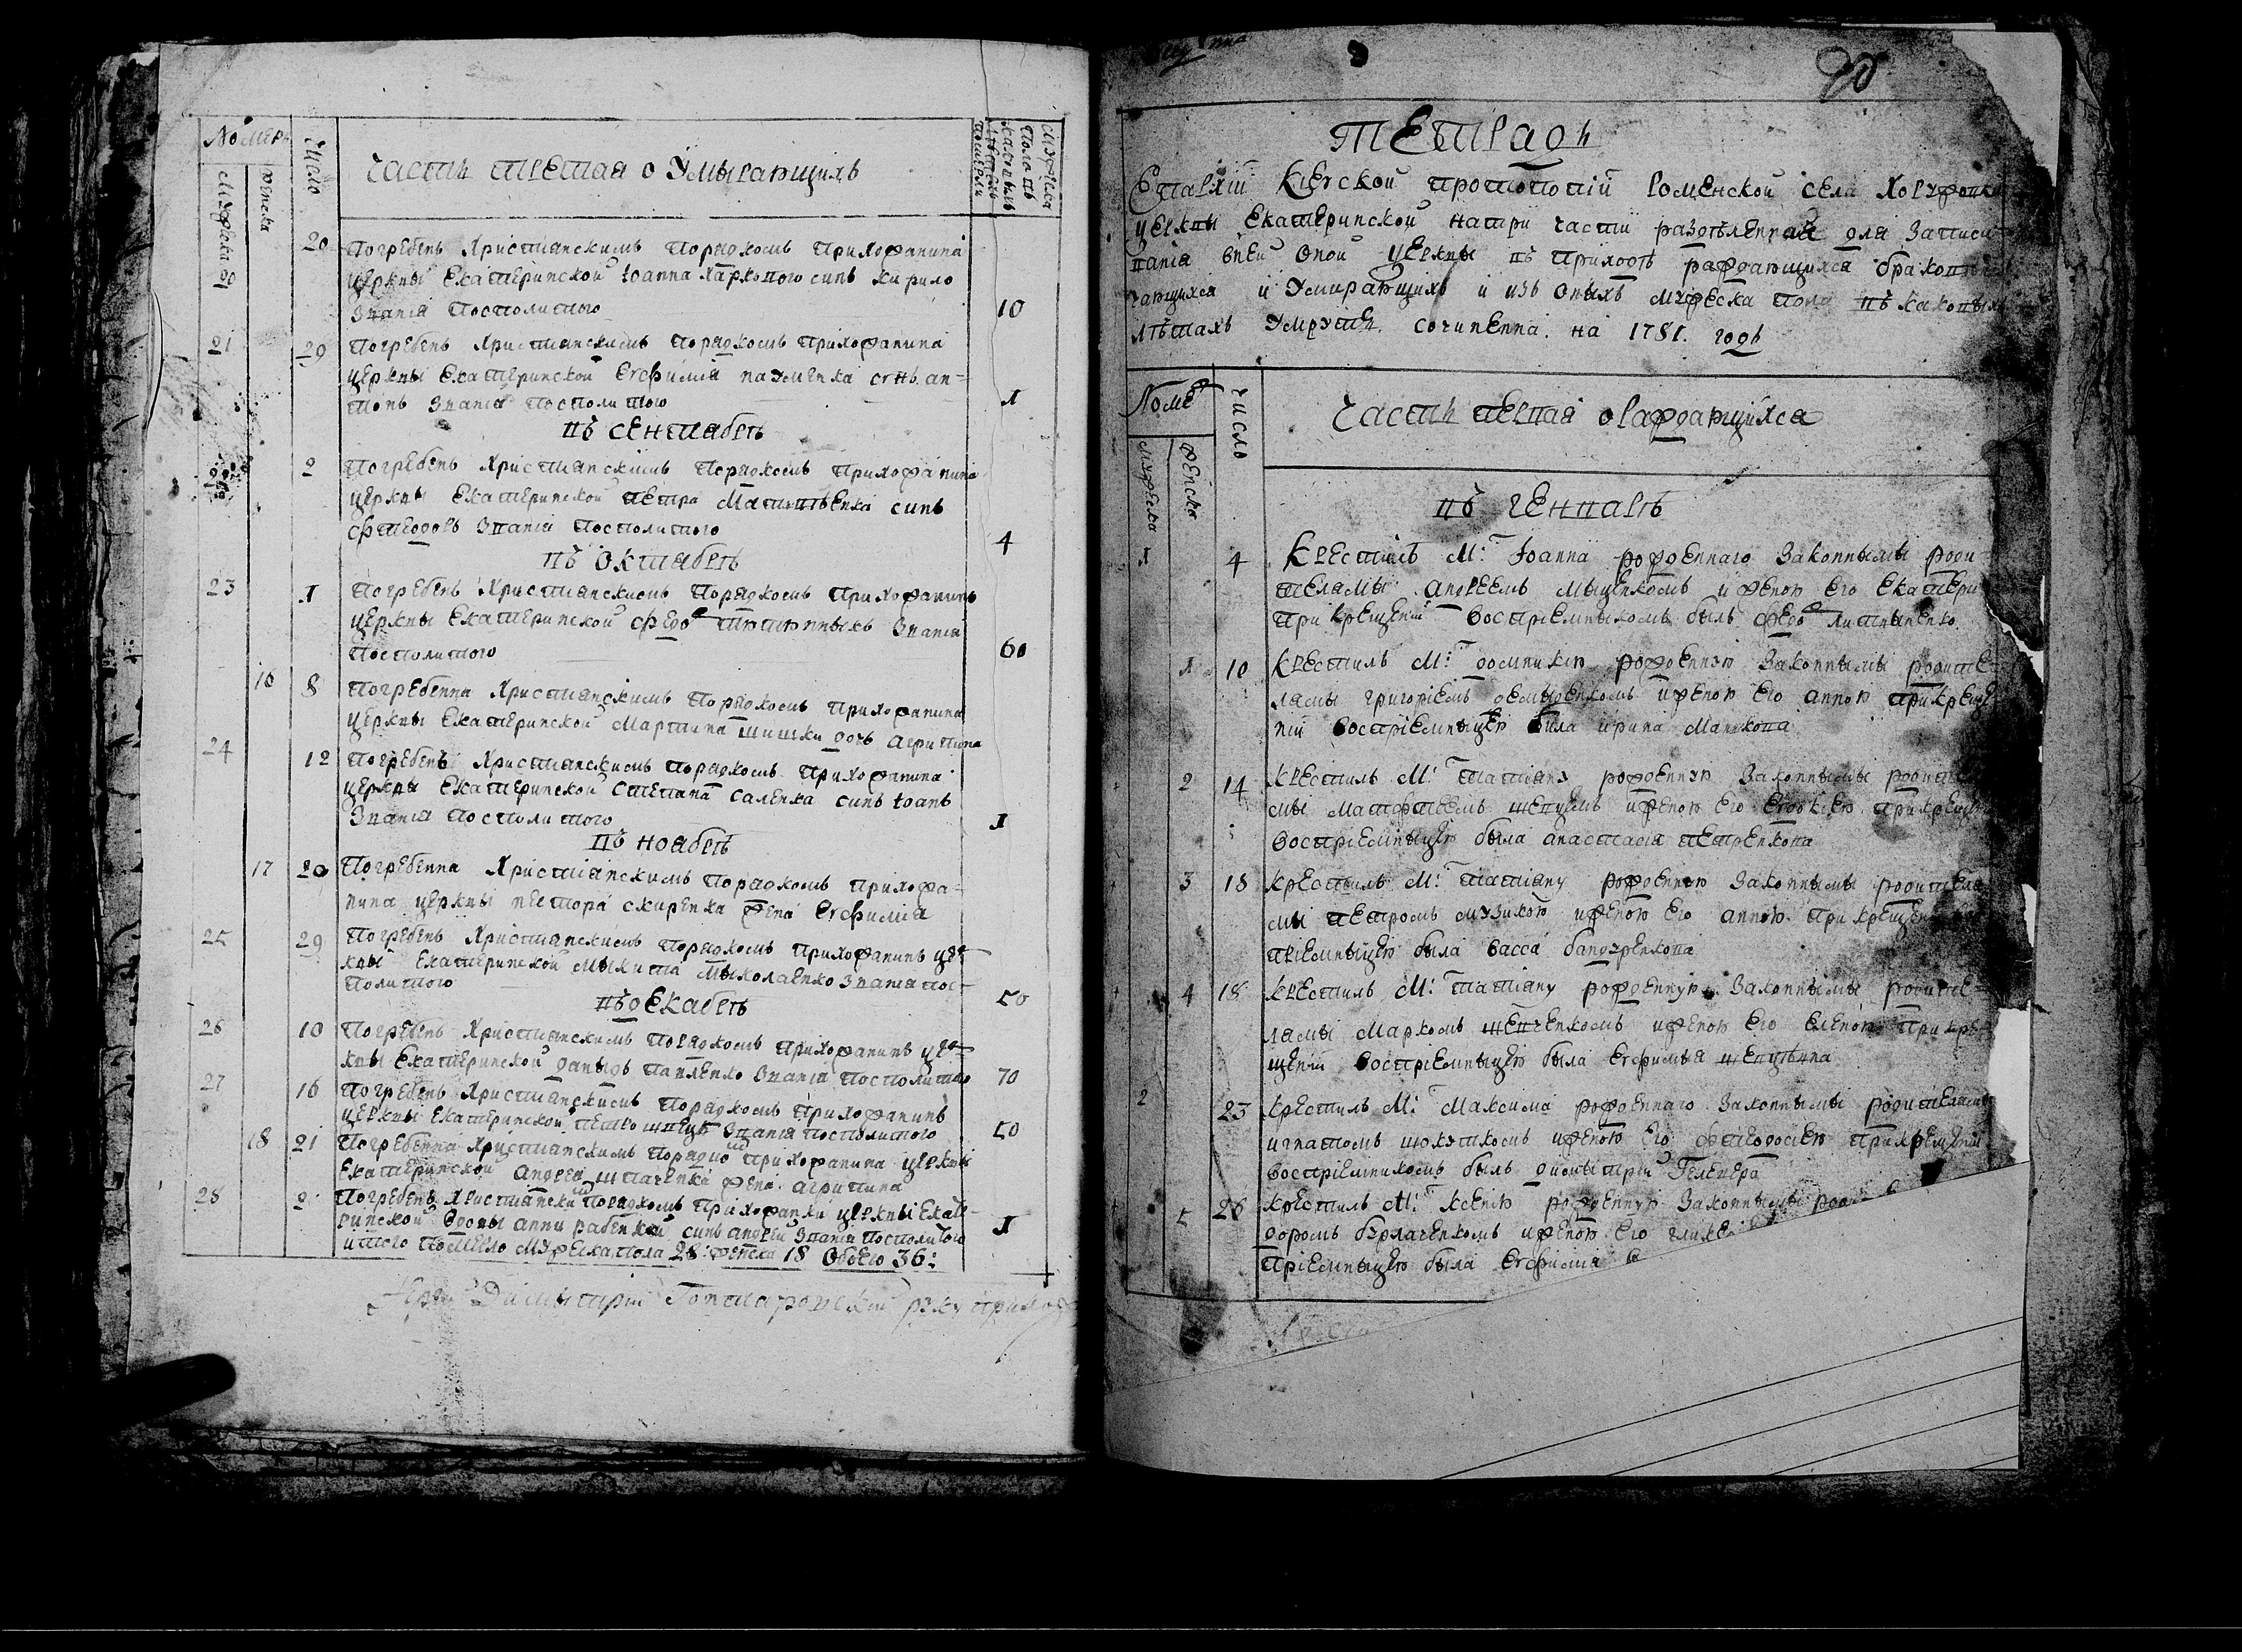 Номеръ
мужеска
женска
Число
Часть третая о Умырающихъ
мужеска
пола въ
каковыхъ
летехъ
померли
20 20 Погребенъ Християнскимъ Порядкомъ Прихожанина
церквы Екатерынской Іоанна Харкового синъ Кирило
Званія Посполитого 10
21 29 Погребенъ Християнскимъ Порядкомъ Прихожанина
церквы Екатерынской Евфимія Науменка синъ ан-
тонъ Званія посполитого 1
въ сентябрѣ
22 2 Погребенъ Християнскимъ Порядкомъ Прихожанина
церквы Екатерынской Петра Матвѣенка синъ
Фтеодоръ Званія Посполитого 4
въ Октябрѣ
23 1 Погребенъ Християнскимъ Порядкомъ Прихожанинъ
церквы Екатерынской Федо Тютюнныкъ Званія
Посполитого 60
16 8 Погребенна Християнскимъ Порядкомъ Прихожанина
церквы Екатерынской Мартина Шишки дочъ Агрипина
24 12 Погребенъ Християнскимъ порядкомъ Прихожанина
церквы Екатерынской Степана Саленка синъ Іоанъ
Званія посполитого 1
въ ноябрѣ
17 20 Погребенна Християнскимъ Порядкомъ Прихожа-
нина церквы Нестора Скиренка жена Евфимія
25 29 Погребенъ Християнскимъ Порядкомъ Прихожанинъ цер
квы Екатерынской Мыкита Мыколаенко Званія пос-
политого 50
въ декабрѣ
26 10 Погребенъ Християнскимъ Порядкомъ Прихожанинъ цер
квы Екатерынской Даныдъ Павленко Званія Посполитаго 70
27 16 Погребенъ Християнскимъ Порядкомъ Прихожанинъ
церквы Екатерынской Петро Швецъ Званія посполитого 50
18 21 Погребенна Християнскимъ Порядко Прихожанина церквы
Екатерынской Андрея Шпаченка жена агрипина
28 2 Погребенъ Християнски Порядкомъ Прихожанки церквы Екате-
рынской вдовы анни синъ андрей Званія посполитого 1
итого Померло Мужеска пола 28 женска 18 Обоего 36:
Іерей Димытрій руку прилож
90
Тетрадь
Епархіи Кіевской протопопіи Роменской села
церквы Екатерынской на три части раздѣленная для Записи
ванія внеи Оной церквы въ Приходѣ раждающихся бракомъ
чающихся и Умирающихъ и изъ Оныхъ мужеска пола въ каковыхъ
лѣтахъ Умрутъ. сочиненна. на 1781. годъ
Номе
мужеска
женска
Число
Часть первая о Раждающихся
въ генварѣ
1 4 Крестилъ М: Іоанна рожденнаго Законнымы роди
телямы андреемъ Мыценкомъ и женою Его Екатери
при крещеніи Воспріемныкомъ былъ Федо Литвыненко
1 10 Крестилъ М: домникію рожденную Законнымы родите-
лямы григоріемъ демыденкомъ и женою Его анною при креще
ніи Воспріемныцею была ирина
2 14 Крестилъ М: Татіану рожденную Законнымы родител
мы Матфтеемъ Шевцемъ и женою Его Евдокіею при крещен
Воспріемныцею была анастасія Петренкова
3 18 Крестилъ М: Татіану рожденную Законнымы родителя
мы Петромъ Музикою и женою Его анною. При крещен
пріемныцею была Васса Бандуренкова
4 18 Крестилъ М: Татіану рожденную Законнымы родите-
лямы Маркомъ Шевченкомъ и женою Его Еленою при кре-
щеніи Воспріемныцею была Евфимыя Шевцывна
2 23 Крестилъ М: Максима рожденнаго Законнымы родителямы
игнатомъ и женою Его Фтеодосіею При крещеніи
Воспріемникомъ былъ Димытрій
5 26 Крестилъ М: Ксенію рожденную Законнымы роди
доромъ и женою Его
пріемныцею была Евфимія